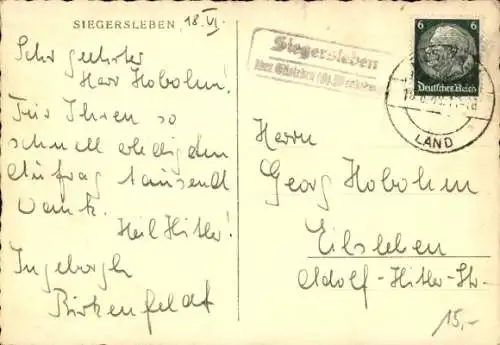 SIEGERSLEBEN 18. VI.
Sehr geehrter
Herr Hobohm!
Für Ihren so
schnell erledigten
Auftrag tausend
Dank.
Heil Hitler!
Ingeborgh
Birkenfeldt
Siegersleben
über Eilsleben
6
Deutsches Reich
LAND
Herrn
Georg Hobohm
Eilsleben
Adolf-Hitler-Str.
15,-